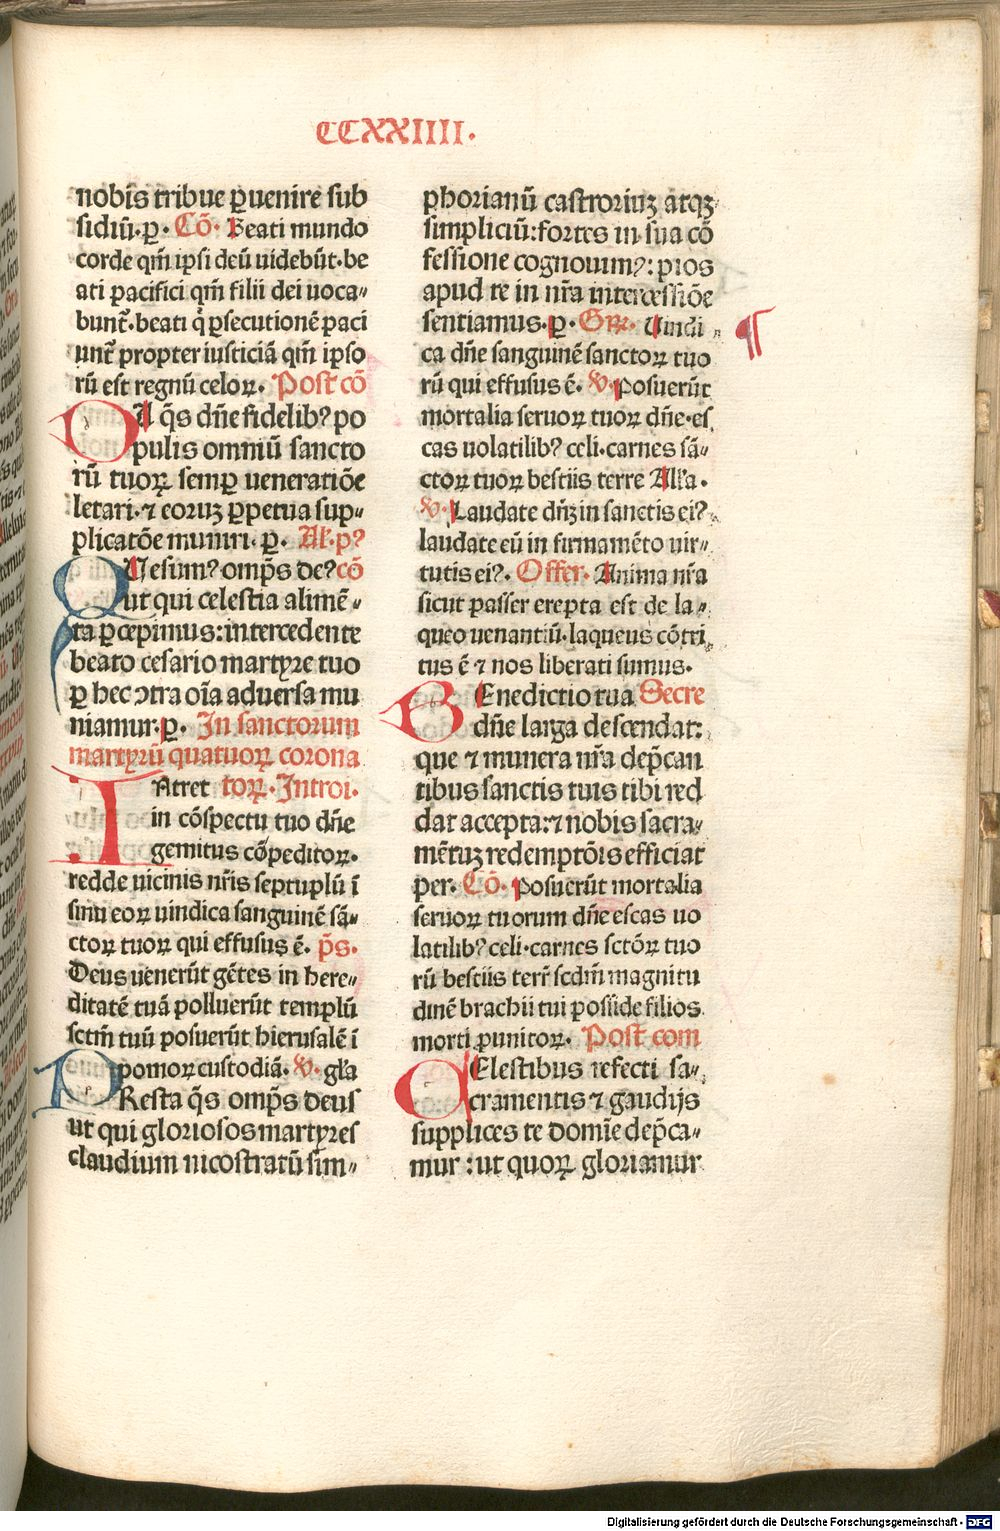 CCXXIIII.
nobis tribue ꝑuenire sub
sidiū·ꝑ· Cō· Beati mundo
corde qm̄ ipsi deū uidebūt·be
ati pacifici qm̄ filii dei uoca⸗
bunt᷑·beati q̇ ꝑsecutionē paci
unt᷑ propter iusticiā qm̄ ipso
rū est regnū celoꝝ· Post cō
DA q̄s dn̄e fidelibꝰ po
pulis omniū sancto
rū tuoꝝ semꝑ ueneratiōe
letari·⁊ eoruꝫ ꝑpetua sup⸗
plicatōe muniri·ꝑ· Al'·pꝰ
QVesumꝰ omp̄s deꝰ cō
ut qui celestia alimē⸗
ta ꝑcepimus:intercedente
beato cesario martyre tuo
ꝑ hec ꝯtra oīa aduersa mu
niamur·ꝑ· In sanctorum
martyrū quatuoꝝ corona
INtret toꝝ·Introi·
in cōspectu tuo dn̄e
gemitus cōpeditoꝝ·
redde uicinis nr̄is septuplū ī
sinu eoꝝ uindica sanguinē sā⸗
ctoꝝ tuoꝝ qui effusus ē· p̄s·
Deus uenerūt gētes in here⸗
ditatē tuā polluerūt templū
sctm̄ tuū posuerūt hierusalē ī
pomoꝝ custodiā· V· gl'a
PResta q̄s omp̄s deus
ut qui gloriosos martyres
claudium nicostratū sim⸗
phorianū castroriuꝫ atqꝫ
simpliciū:fortes in sua cō
fessione cognouimꝰ:pios
apud te in nr̄a intercessiōe
sentiamus·ꝑ· Gr̄· Uindi
ca dn̄e sanguinē sanctoꝝ tuo
rū qui effusus ē· V· Posuerūt
mortalia seruoꝝ tuoꝝ dn̄e·es
cas uolatilibꝰ celi·carnes sā⸗
ctoꝝ tuoꝝ bestiis terre All'a·
V· Laudate dn̄ꝫ in sanctis eiꝰ
laudate eū in firmamēto uir⸗
tutis eiꝰ· Offer· Anima nr̄a
sicut passer erepta est de la⸗
queo uenantiū·laqueus cōtri
tus ē ⁊ nos liberati sumus·
BEnedictio tua Secre
dn̄e larga descendat:
que ⁊ munera nr̄a dep̄can
tibus sanctis tuis tibi red
dat accepta:⁊ nobis sacra⸗
mētuꝫ redemptōis efficiat
per· Cō· Posuerūt mortalia
seruoꝝ tuorum dn̄e escas uo
latilibꝰ celi·carnes sctōꝝ tuo
rū bestiis terr̄ scdm̄ magnitu
dinē brachii tui posside filios
morti punitoꝝ· Post com
CElestibus refecti sa⸗
cramentis ⁊ gaudijs
supplices te domīe dep̄ca⸗
mur:ut quoꝝ gloriamur
Digitalisierung gefördert durch die Deutsche Forschungsgemeinschaft - DFG